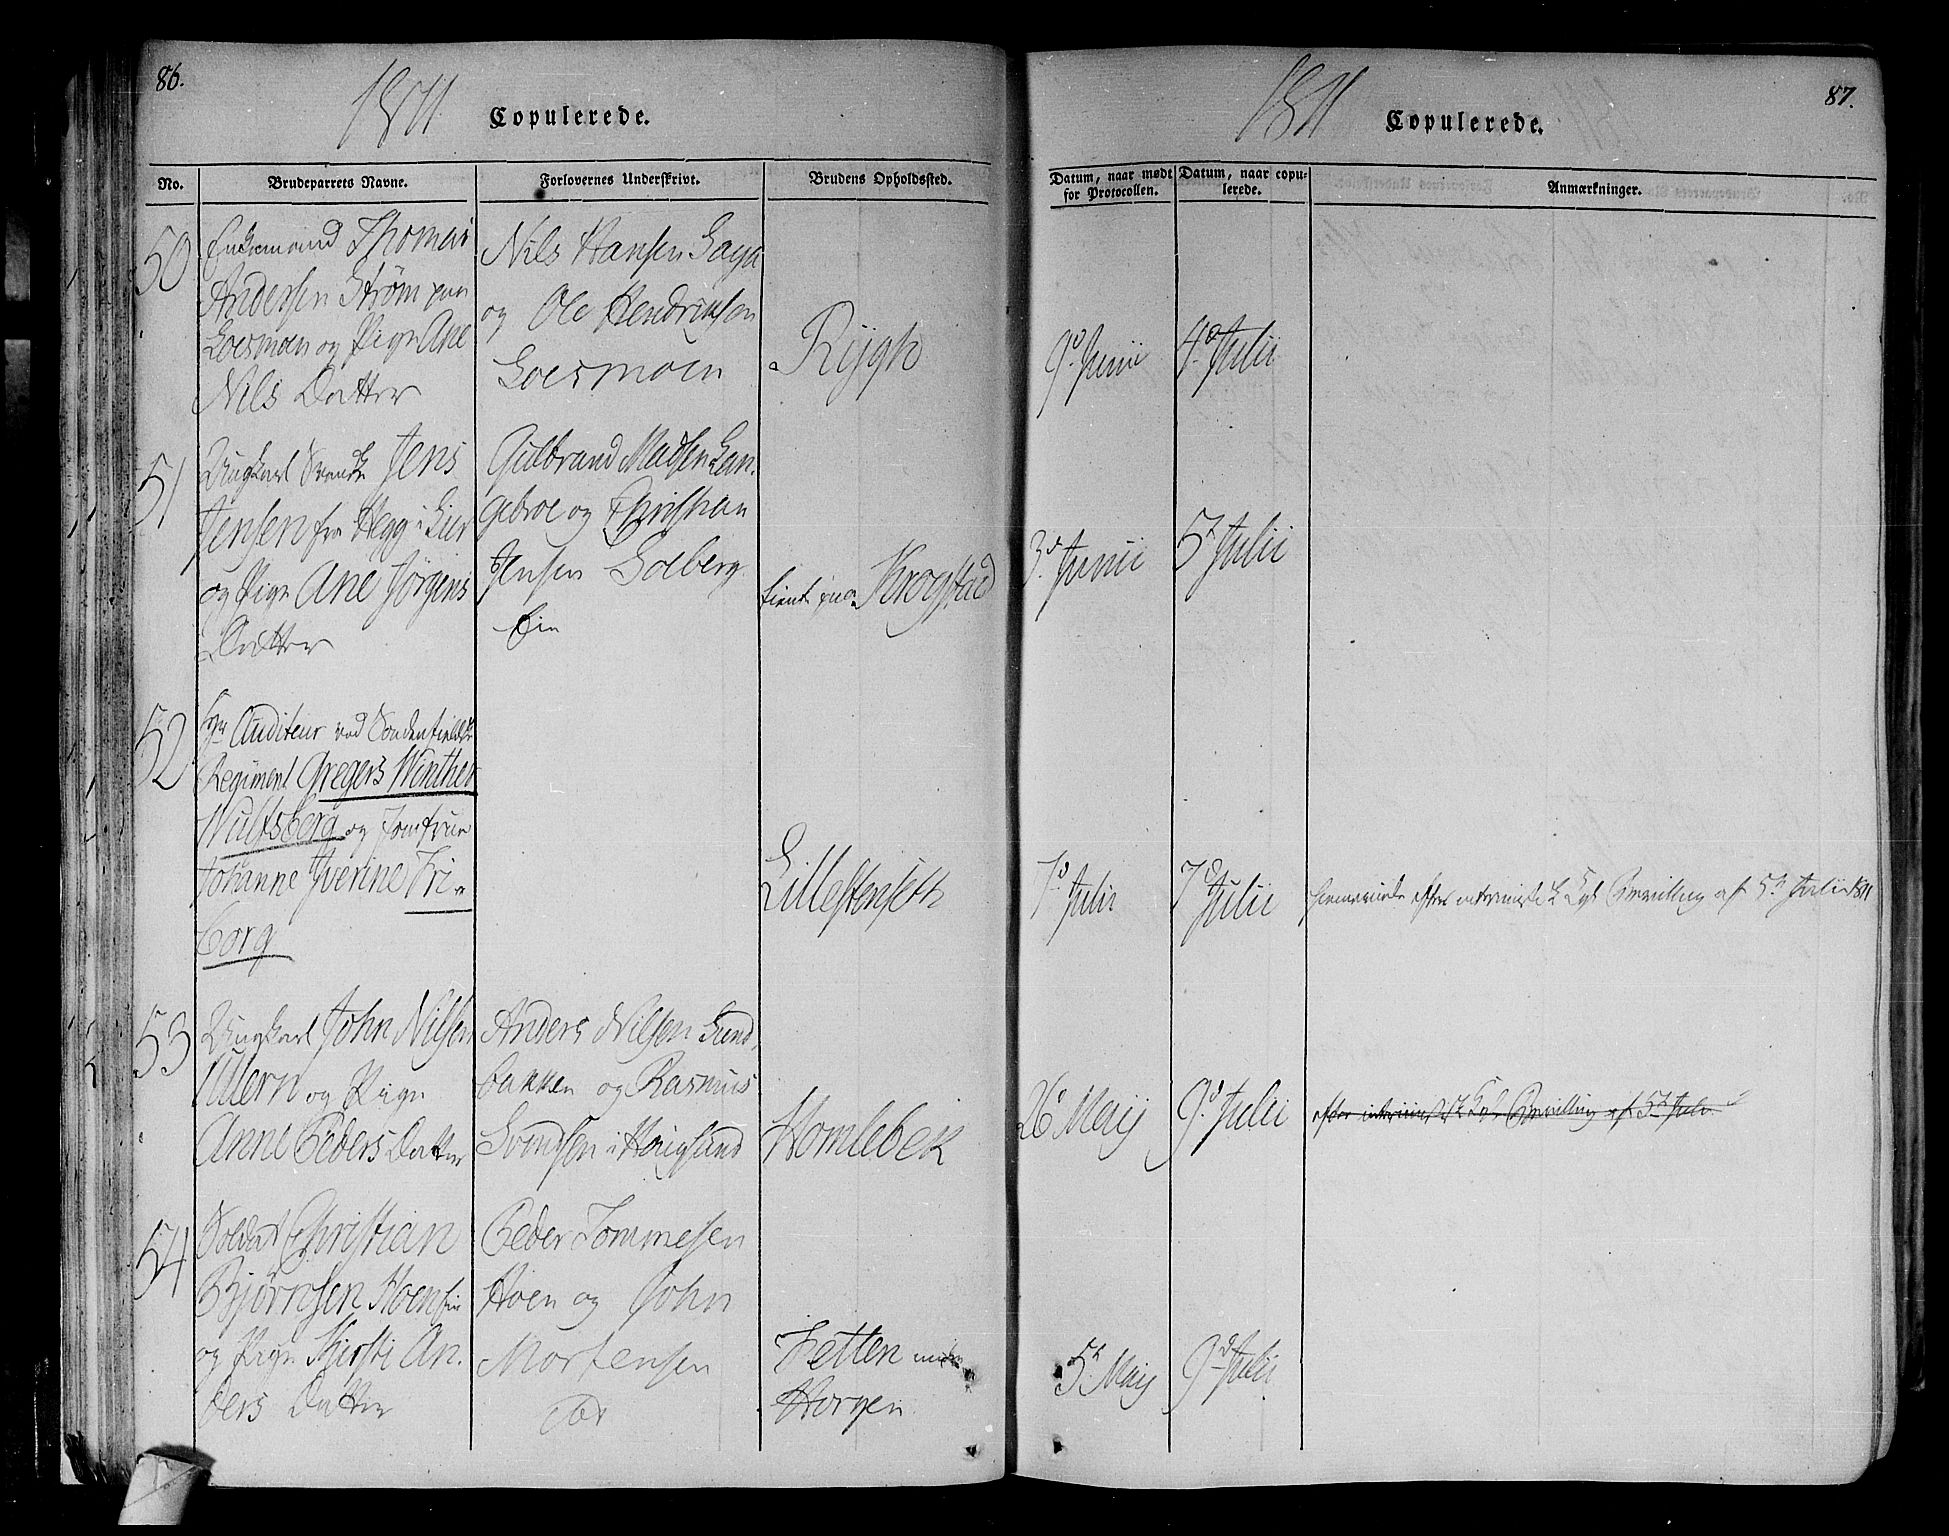 86.
1811
Copulerede.
No.
Brudeparrets Navne.
Forlovernes Underskrivt.
Brudens Opholdssted.
50
Enkemand Thomas
Andersen Strøm paa
Loesmoen og Pige Ane
Nils Datter
Nils Hansen Saga
og Ole Hendriksen
Loesmoen
Rygh
51
Ungkarl Svend Jens
Jensen fra Hegg i Lier
og Pige Ane Jørgens
Datter
Gulbrand Madsen Lan-
gebroe og Christian
Jensen Solberg
Eie
tient paa Krogstad
52
Hr Auditeur ved Søndenfieldske
Regiment Gregers Winther
Wulfsberg og Jomfrue
Johanne Iverine Fri-
borg
Lillestenseth
53
Ungkarl John Nilsen
Ulern og Pige
Anne Peders Datter
Anders Nilsen Sund-
bakken og Rasmus
Svendsen i Hougsund
Homlebek
54
Soldat Christian
Bjørnsen Hoenseie
og Pige Kjersti An-
ders Datter
Peder Tommesen
Hoen og John
Mortensen
Tetten under
Horgen
1811
Copulerede.
87.
Datum, naar mødt
for Protocollen.
Datum, naar copu-
lerede.
Anmærkninger.
9d Junii
4d Julii
3d Junii
5t Julii
7d Julii
7d Julii
hiemmeviede efter interimistisk Kgl Bevilling af 5t Julii 1811
26d Maij
9d Julii
efter interimistisk Kgl Bevilling af 5t Julii
5t Maij
9d Julii